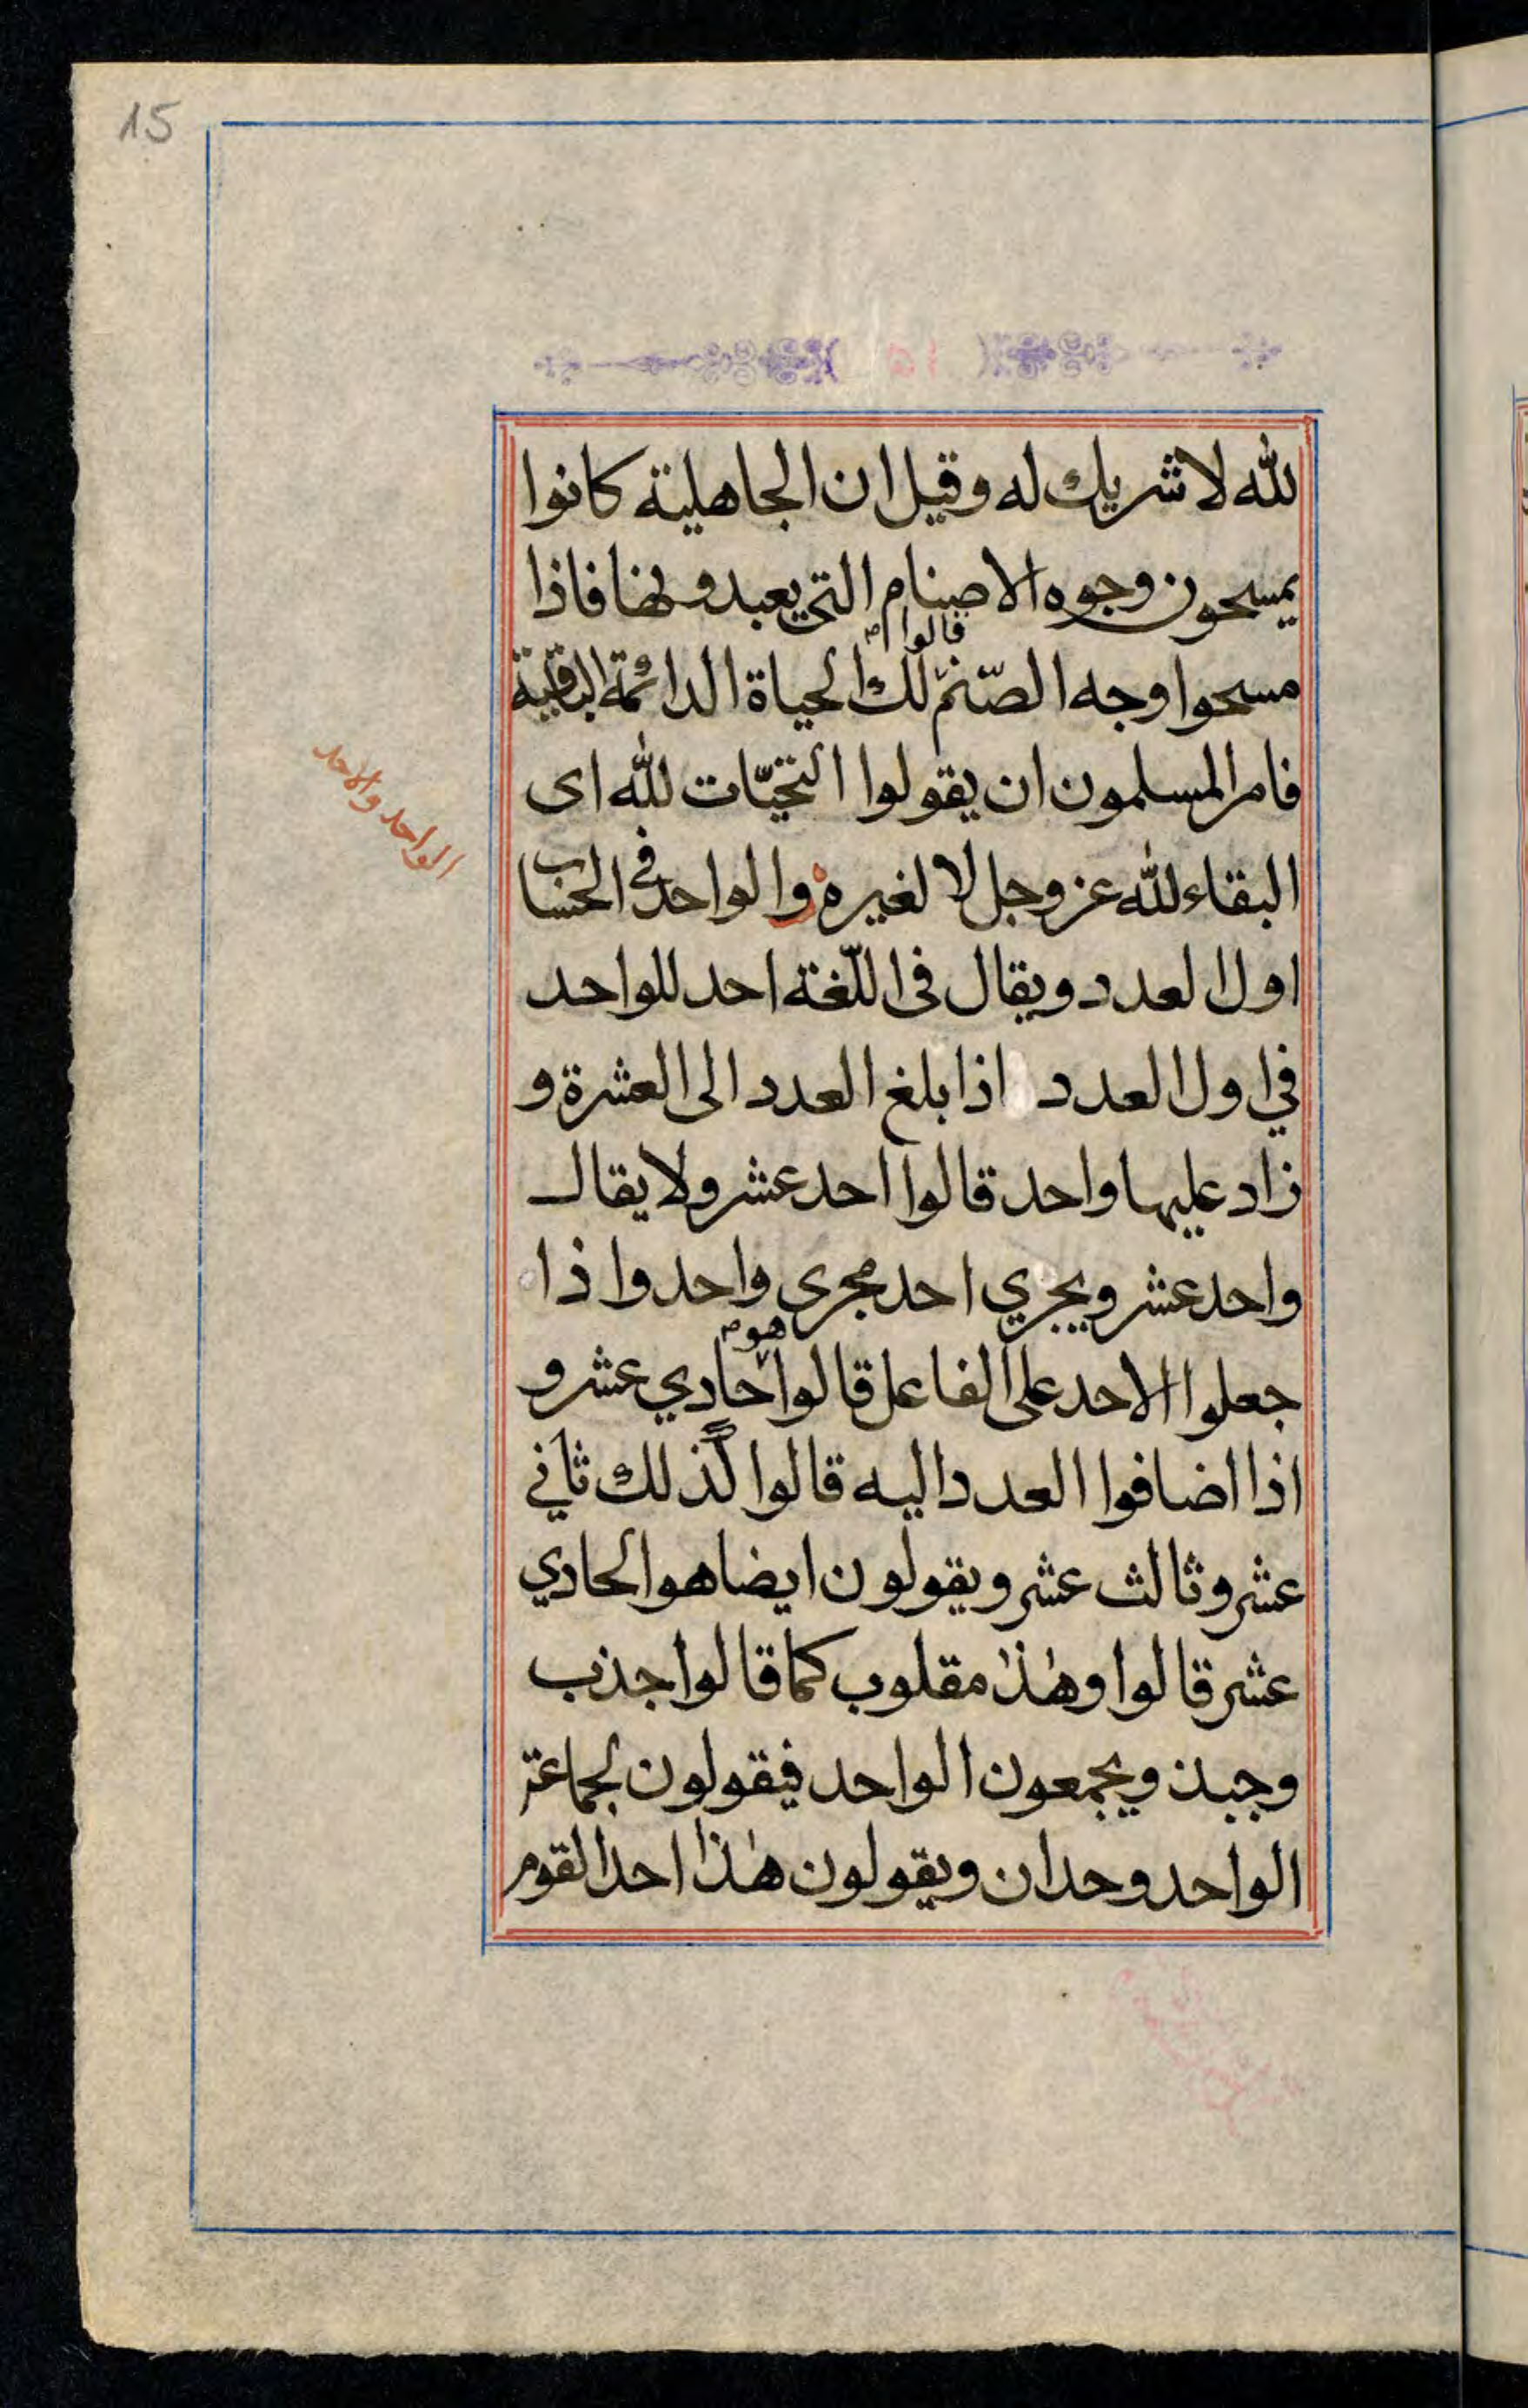 15
لله لا شريك له وقيل ان الجاهلية كانوا
يمسحون وجوه الاصنام التى يعبدونها فاذا
قالوا
مسحوا وجه الصّنم لك الحياة الدائمة الباقية
فامر المسلمون ان يقولوا التحيّات لله اى
الواحد والاحد
البقاء لله عز وجل لا لغيره والواحد فى الحساب
اول العدد ويقال فى اللّغة احد للواحد
في اول العدد اذا بلغ العدد الى العشرة و
زاد عليها واحد قالوا احد عشر ولا يقال
واحد عشر ويجري احد مجرى واحد واذا
هو
جعلوا الاحد على الفاعل قالوا حادي عشر و
اذا اضافوا العدد اليه قالوا كذلك ثاني
عشر وثالث عشر ويقولون ايضا هو الحادي
عشر قالوا وهٰذا مقلوب كما قالوا جذب
وجبذ ويجمعون الواحد فيقولون لجماعة
الواحد وحدان ويقولون هٰذا احد القوم